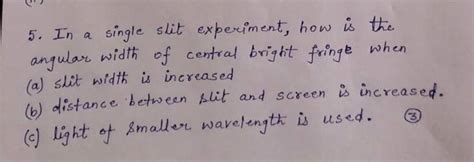 5. In a single slit experiment, how is the
angular width of central bright fringe when
(a) slit width is increased
(b) distance between slit and screen is increased.
(c) light of smaller wavelength is used. ③